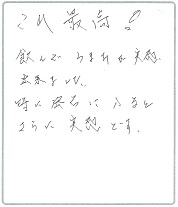 これ最高!
飲んで うまさが実感
出来ました。
特に 居に ふると
さらに 実感 です。